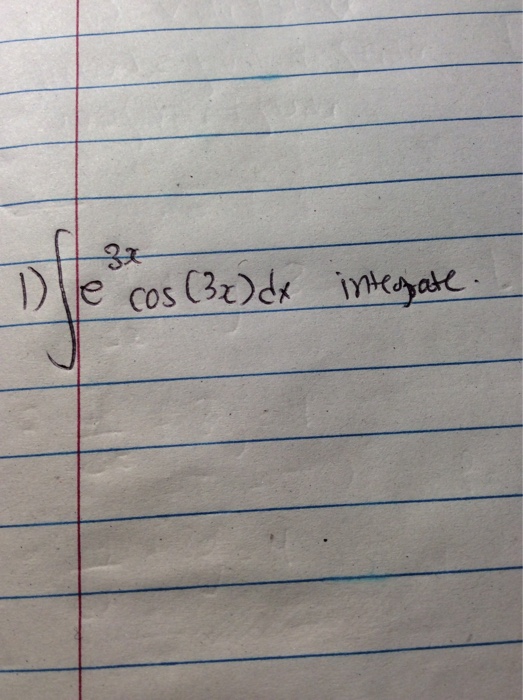 1) ∫e^{3x} cos(3x)dx integrate.